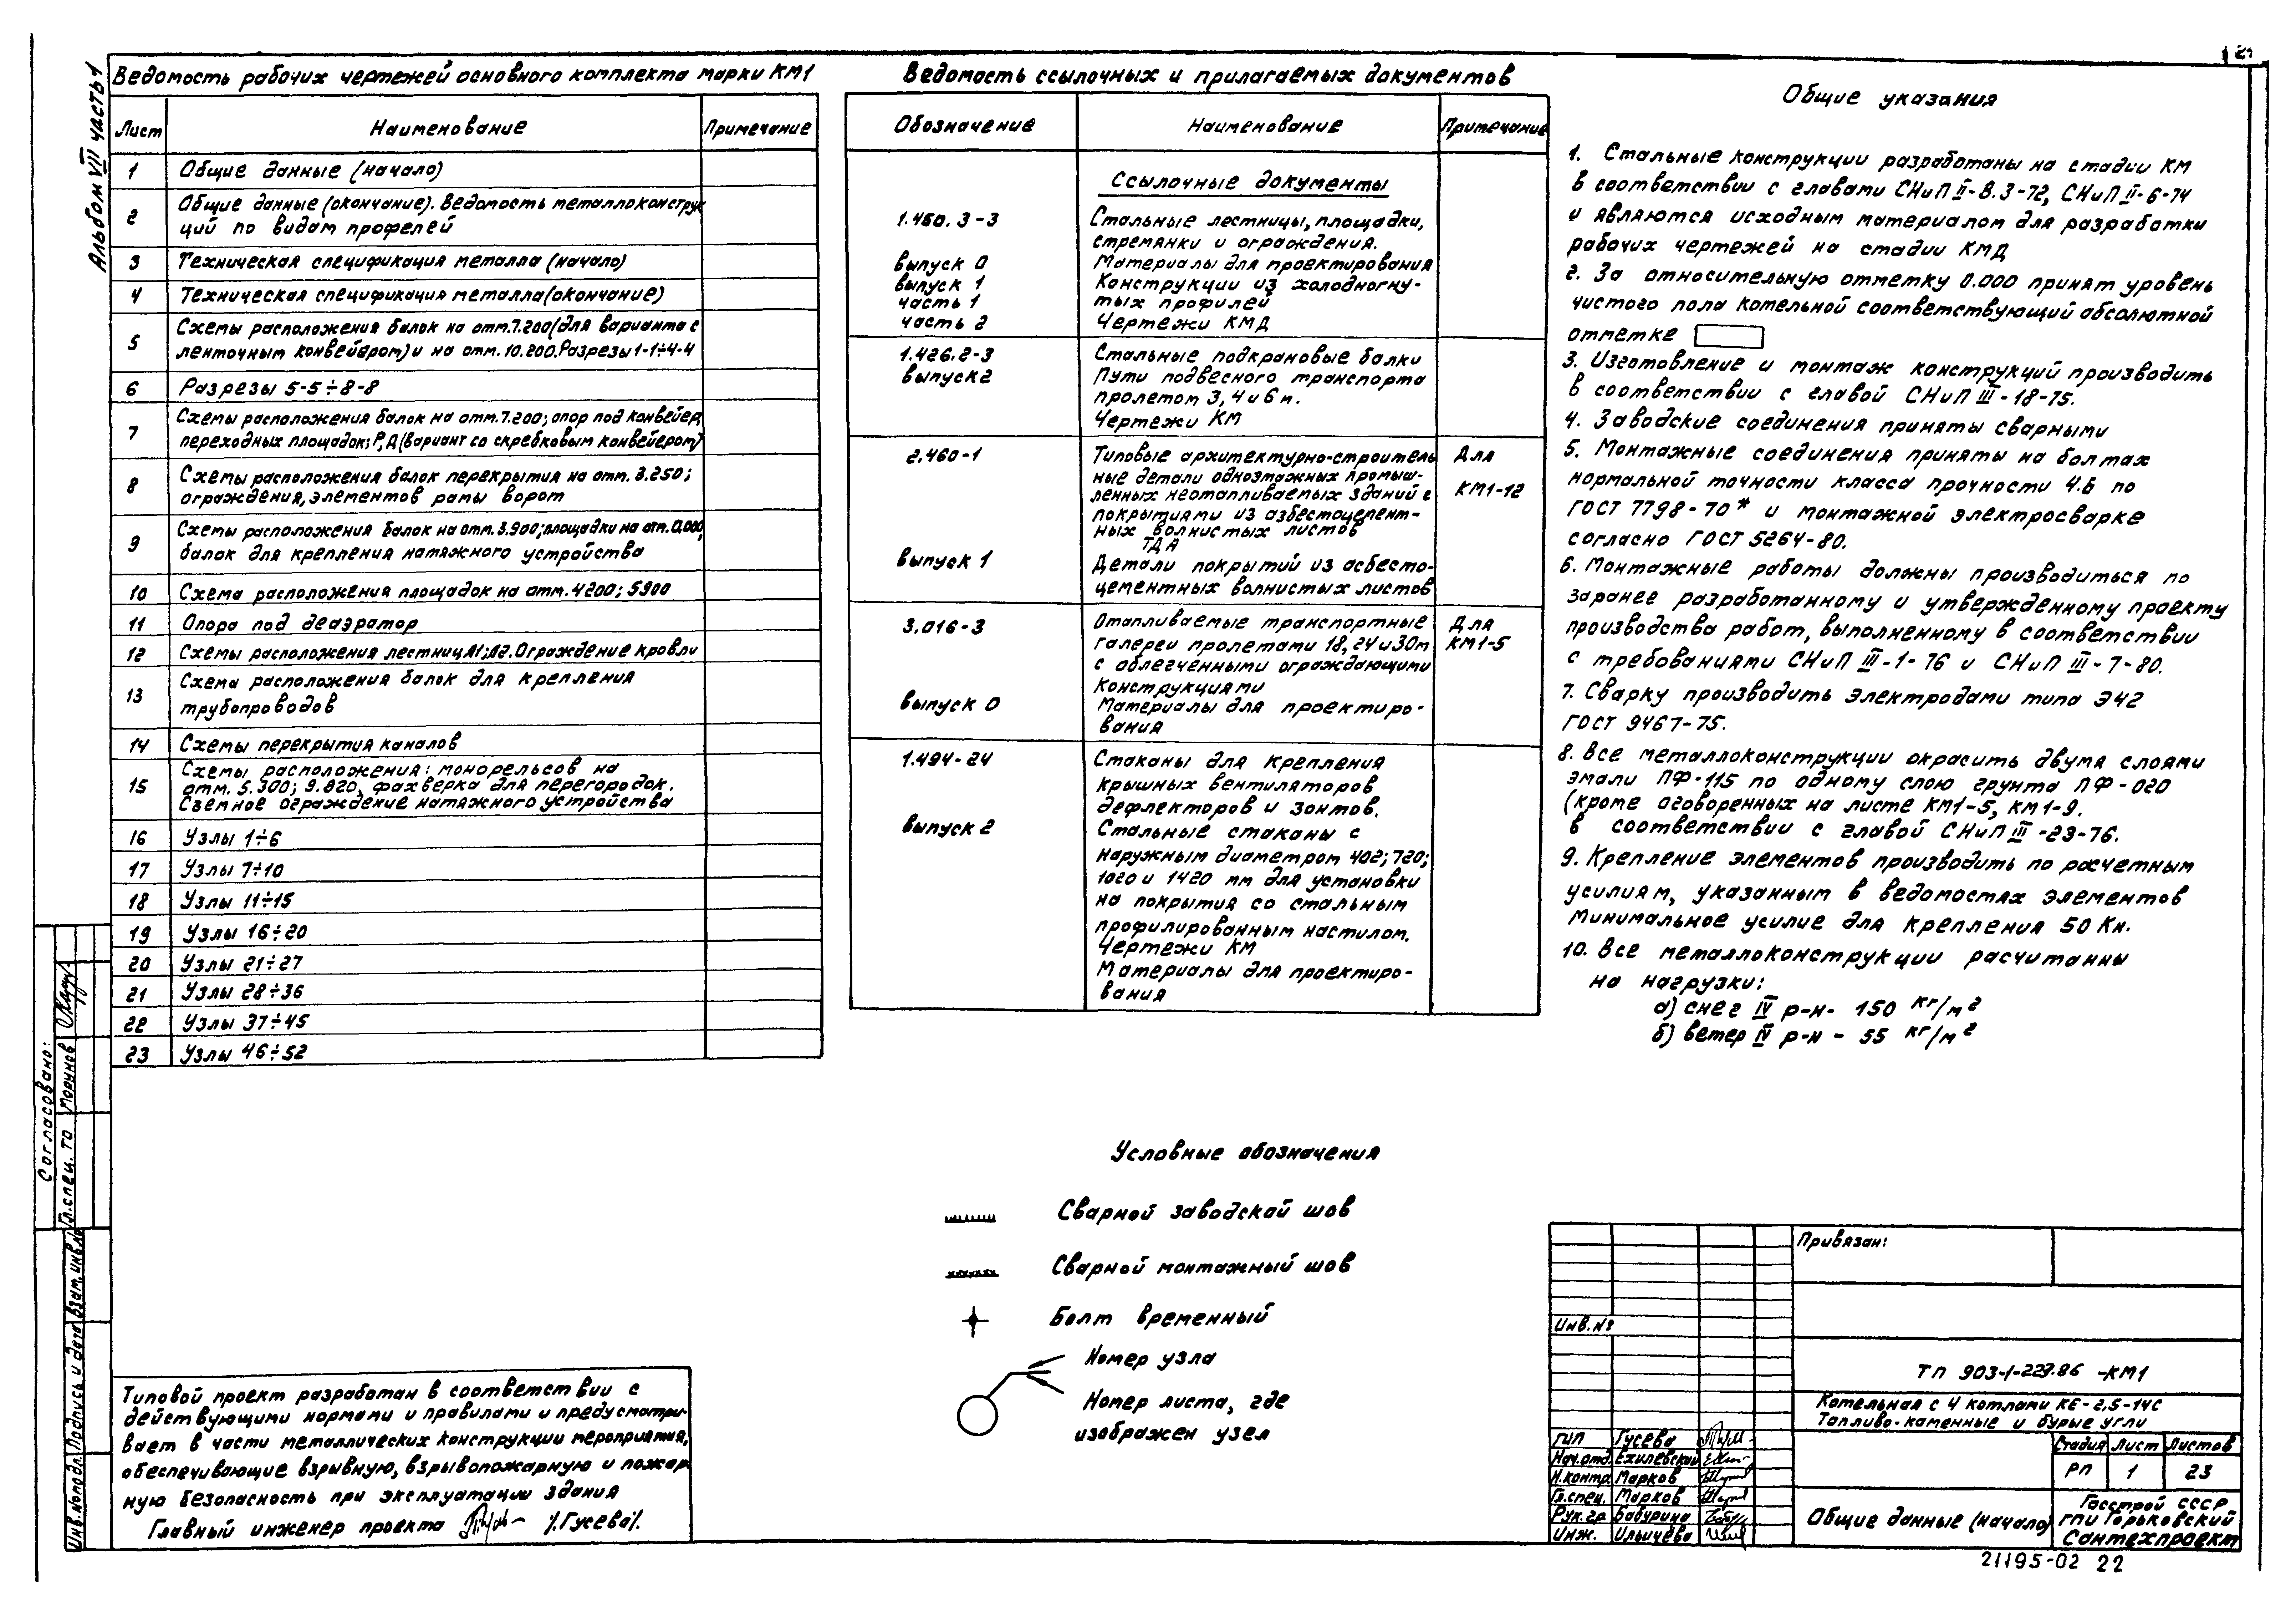 Альбом VII часть 1
Ведомость рабочих чертежей основного комплекта марки КМ1
Лист Наименование Примечание
1 Общие данные (начало)
2 Общие данные (окончание). Ведомость металлоконструк
ций по видам профелей
3 Техническая спецификация металла (начало)
4 Техническая спецификация металла (окончание)
5 Схемы расположения балок на отм.7.200 (для варианта с
ленточным конвейером) и на отм. 10.200. Разрезы 1-1÷4-4
6 Разрезы 5-5÷8-8
7 Схемы расположения балок на отм.7.200; опор под конвейер,
переходных площадок; Р, Д (вариант со скребковым конвейером)
8 Схемы расположения балок перекрытия на отм. 3.250;
ограждения, элементов рамы ворот
9 Схемы расположения балок на отм. 3.900; площадки на отм. 0.000;
балок для крепления натяжного устройства
10 Схема расположения площадок на отм. 4200; 5900
11 Опора под деаэратор
12 Схемы расположения лестниц Л1; Л2. Ограждение кровли
13 Схема расположения балок для крепления
трубопроводов
14 Схемы перекрытия каналов
15 Схемы расположения: монорельсов на
отм. 5.300; 9.820, фахверка для перегородок.
Съемное ограждение натяжного устройства
16 Узлы 1÷6
17 Узлы 7÷10
18 Узлы 11÷15
19 Узлы 16÷20
20 Узлы 21÷27
21 Узлы 28÷36
22 Узлы 37÷45
23 Узлы 46÷52
Ведомость ссылочных и прилагаемых документов
Обозначение Наименование Примечание
Ссылочные документы
1.450.3-3 Стальные лестницы, площадки,
стремянки и ограждения.
выпуск 0 Материалы для проектирования
выпуск 1 Конструкции из холодногну-
часть 1 тых профилей
часть 2 Чертежи КМД
1.426.2-3 Стальные подкрановые балки
выпуск 2 Пути подвесного транспорта
пролетом 3, 4 и 6 м.
Чертежи КМ
2.460-1 Типовые архитектурно-строитель Для
ные детали одноэтажных промыш-
ленных неотапливаемых зданий с КМ1-12
покрытиями из азбестоцемент-
ных волнистых листов
ТДА
выпуск 1 Детали покрытий из асбесто-
цементных волнистых листов
3.016-3 Отапливаемые транспортные Для
галереи пролетами 18, 24 и 30м КМ1-5
с облегченными ограждающими
конструкциями
выпуск 0 Материалы для проектиро-
вания
1.494-24 Стаканы для крепления
крышных вентиляторов
дефлекторов и зонтов.
выпуск 2 Стальные стаканы с
наружным диаметром 402; 720;
1020 и 1420 мм для установки
на покрытия со стальным
профилированным настилом.
Чертежи КМ
Материалы для проектиро-
вания
Общие указания
1. Стальные конструкции разработаны на стадии КМ
в соответствии с главами СНиП II-В.3-72, СНиП II-6-74
и являются исходным материалом для разработки
рабочих чертежей на стадии КМД
2. За относительную отметку 0.000 принят уровень
чистого пола котельной соответствующий абсолютной
отметке
3. Изготовление и монтаж конструкций производить
в соответствии с главой СНиП III-18-75.
4. Заводские соединения приняты сварными
5. Монтажные соединения приняты на болтах
нормальной точности класса прочности 4.6 по
ГОСТ 7798-70* и монтажной электросварке
согласно ГОСТ 5264-80.
6. Монтажные работы должны производиться по
заранее разработанному и утвержденному проекту
производства работ, выполненному в соответствии
с требованиями СНиП III-1-76 и СНиП III-7-80.
7. Сварку производить электродами типа Э42
ГОСТ 9467-75.
8. Все металлоконструкции окрасить двумя слоями
эмали ПФ-115 по одному слою грунта ПФ-020
(кроме оговоренных на листе КМ1-5, КМ1-9.
в соответствии с главой СНиП III-23-76.
9. Крепление элементов производить по расчетным
усилиям, указанным в ведомостях элементов
Минимальное усилие для крепления 50 Кн.
10. Все металлоконструкции расчитанны
на нагрузки:
а) снег IV р-н- 150 кг/м2
б) ветер IV р-н - 55 кг/м2
Условные обозначения
Сварной заводской шов
Сварной монтажный шов
Болт временный
Номер узла
Номер листа, где
изображен узел
Типовой проект разработан в соответствии с
действующими нормами и правилами и предусматри-
вает в части металлических конструкции мероприятия,
обеспечивающие взрывную, взрывопожарную и пожар
ную безопасность при эксплуатации здания
Главный инженер проекта /.Гусева/.
Согласовано:
Гл.спец. ТО Морунов
Инв.№подл. Подпись и дата Взам.инв.№
Привязан:
Инв.№
ТП 903-1-227.86 -КМ1
Котельная с 4 котлами КЕ-2,5-14С
Топливо-каменные и бурые угли
ГИП Гусева
Нач.отд. Ехилевский
Н.контр. Марков
Гл.спец. Марков
Рук.гр Бабурина
Инж. Ильичева
Стадия Лист Листов
РП 1 23
Общие данные (начало)
Госстрой СССР
ГПИ Горьковский
Сантехпроект
21195-02 22